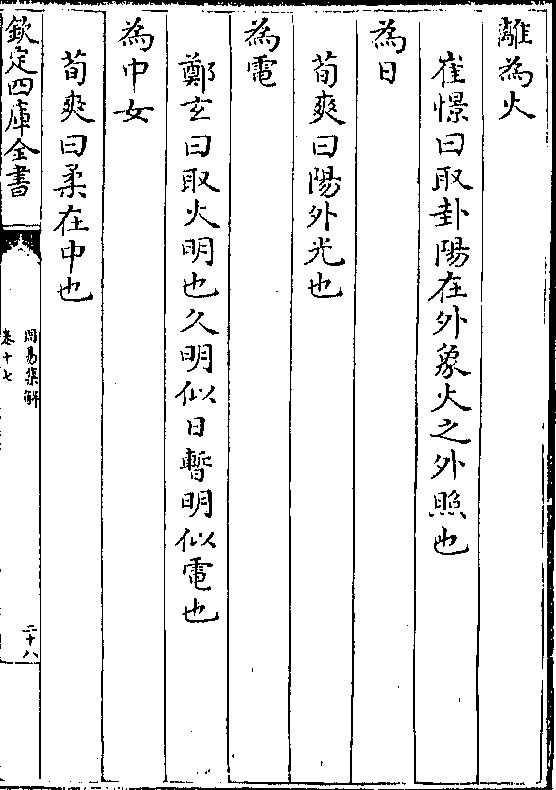 離為火
崔憬曰取卦陽在外象火之外照也
為日
荀爽曰陽外光也
為電
鄭玄曰取火明也久明似日暫明似電也
為中女
荀爽曰柔在中也
欽定四庫全書
周易集解
卷十七
二十八